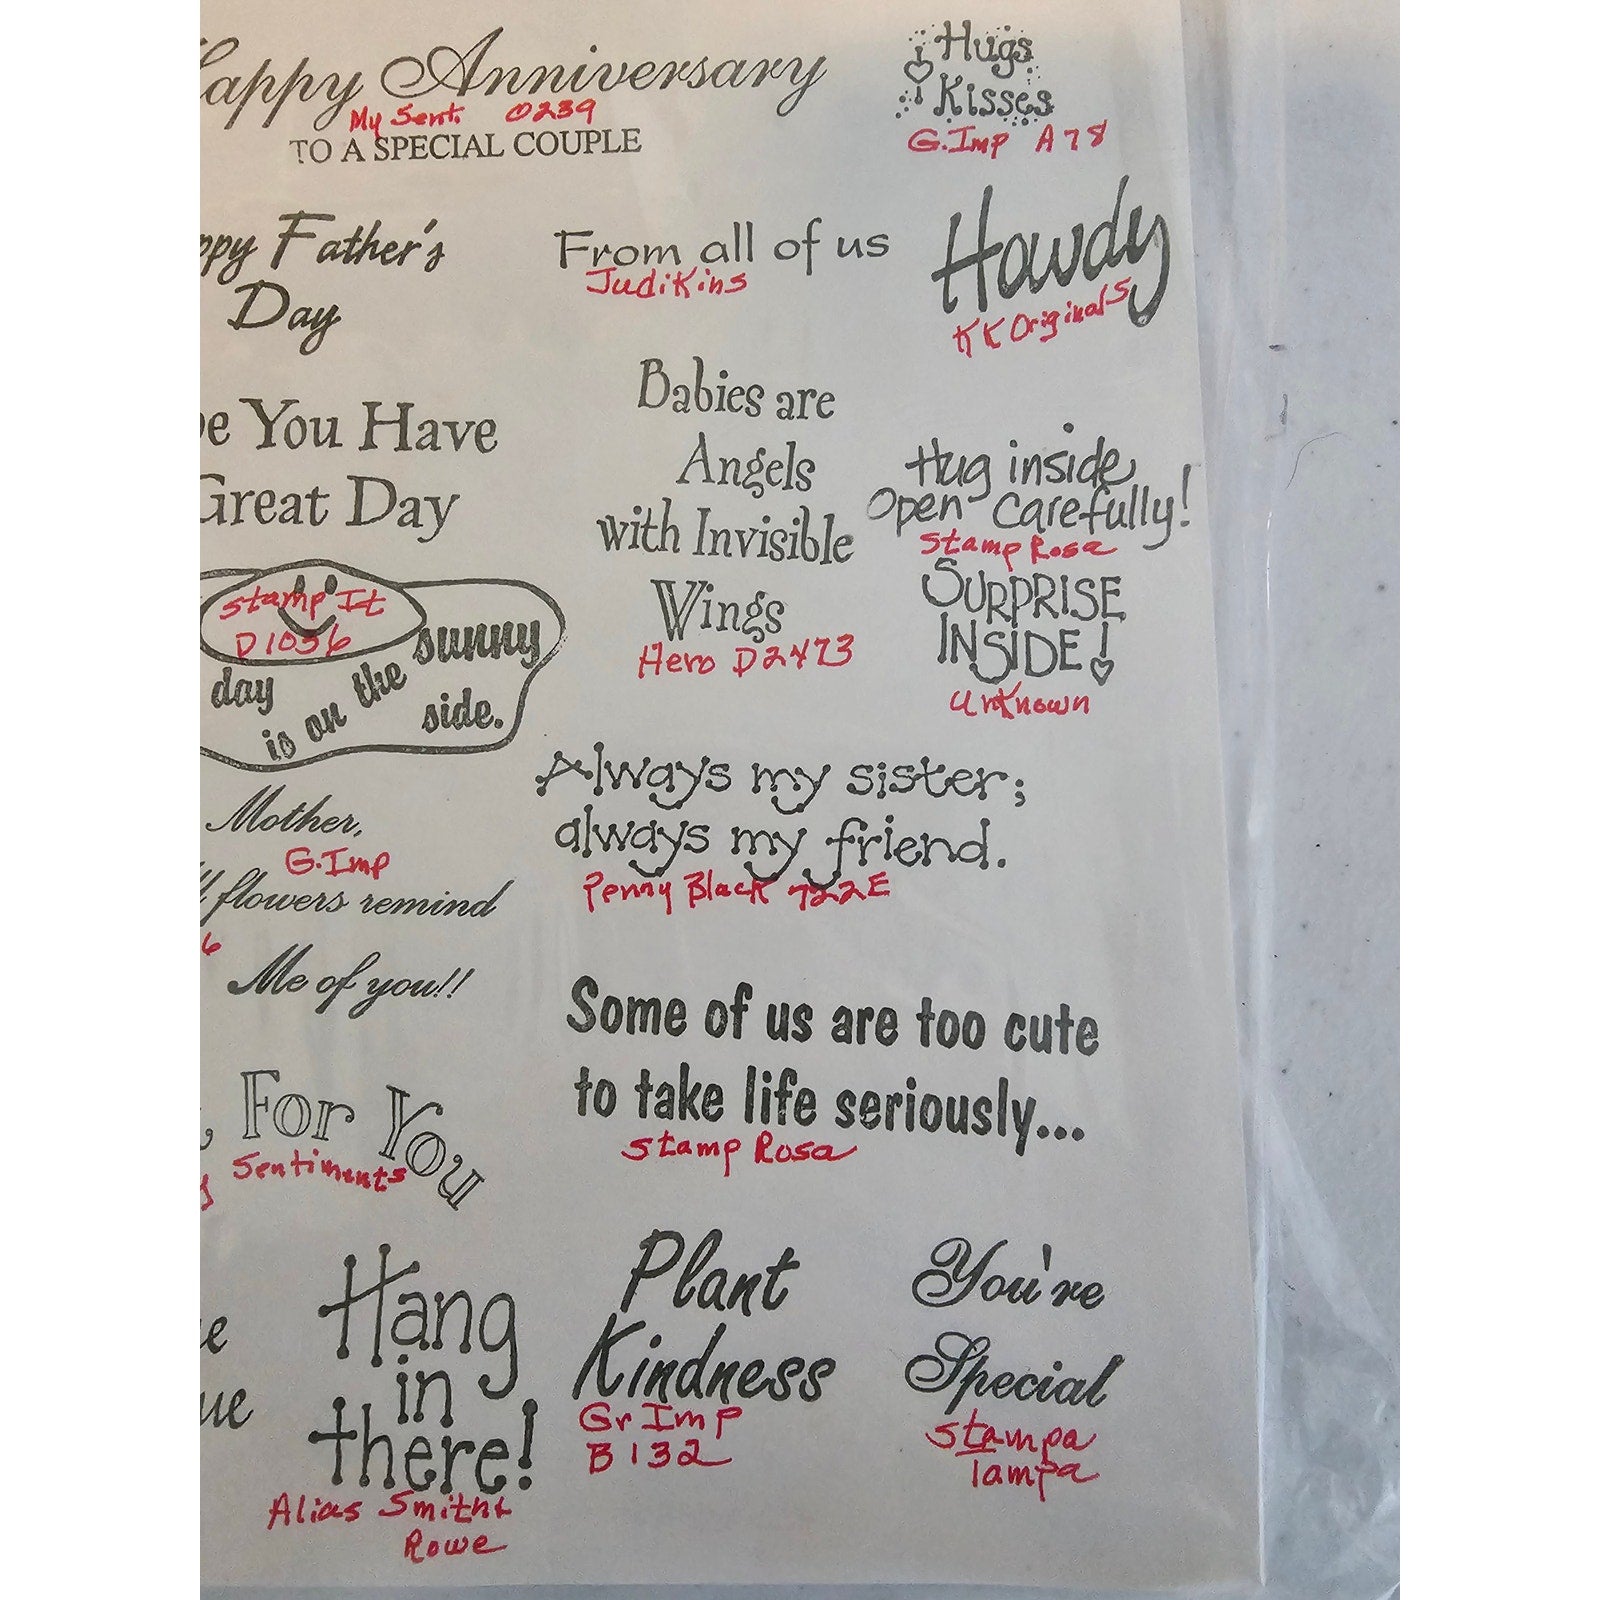 Happy Anniversary
My Sent. 0239
TO A SPECIAL COUPLE
Hugs
Kisses
G.Imp A78
Father's
Day
From all of us
JudiKins
Howdy
KK Originals
You Have
Great Day
Babies are
Angels
with Invisible
Wings
Hero D2473
Hug inside
Open Carefully!
Stamp Rosa
SURPRISE
INSIDE!
Unknown
Stamp It
D1056
sunny
day
is on the
side.
Always my sister;
always my friend.
Penny Black 722E
Mother,
G.Imp
flowers remind
6
Me of you!!
Some of us are too cute
to take life seriously...
Stamp Rosa
, For You
Sentiments
Hang
in
there!
Alias Smith &
Rowe
Plant
Kindness
Gr Imp
B132
You're
Special
Stampa
Tampa